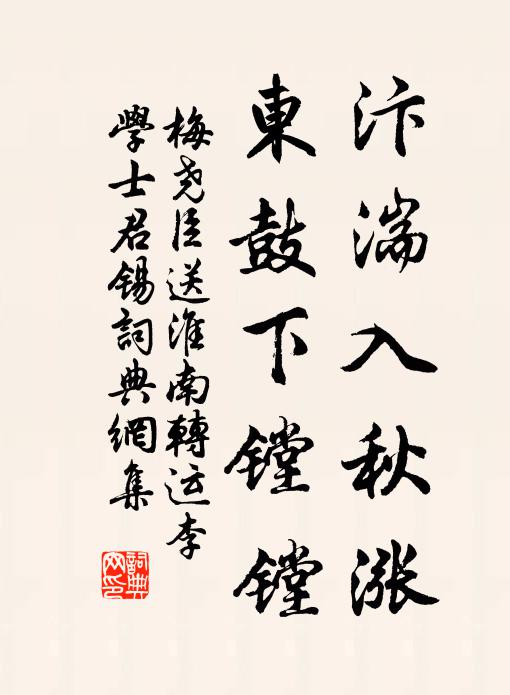 汴湍入秋漲
東鼓下镗镗
梅尧臣送淮南轉运李
學士君锡詞典網集
詞典
网印